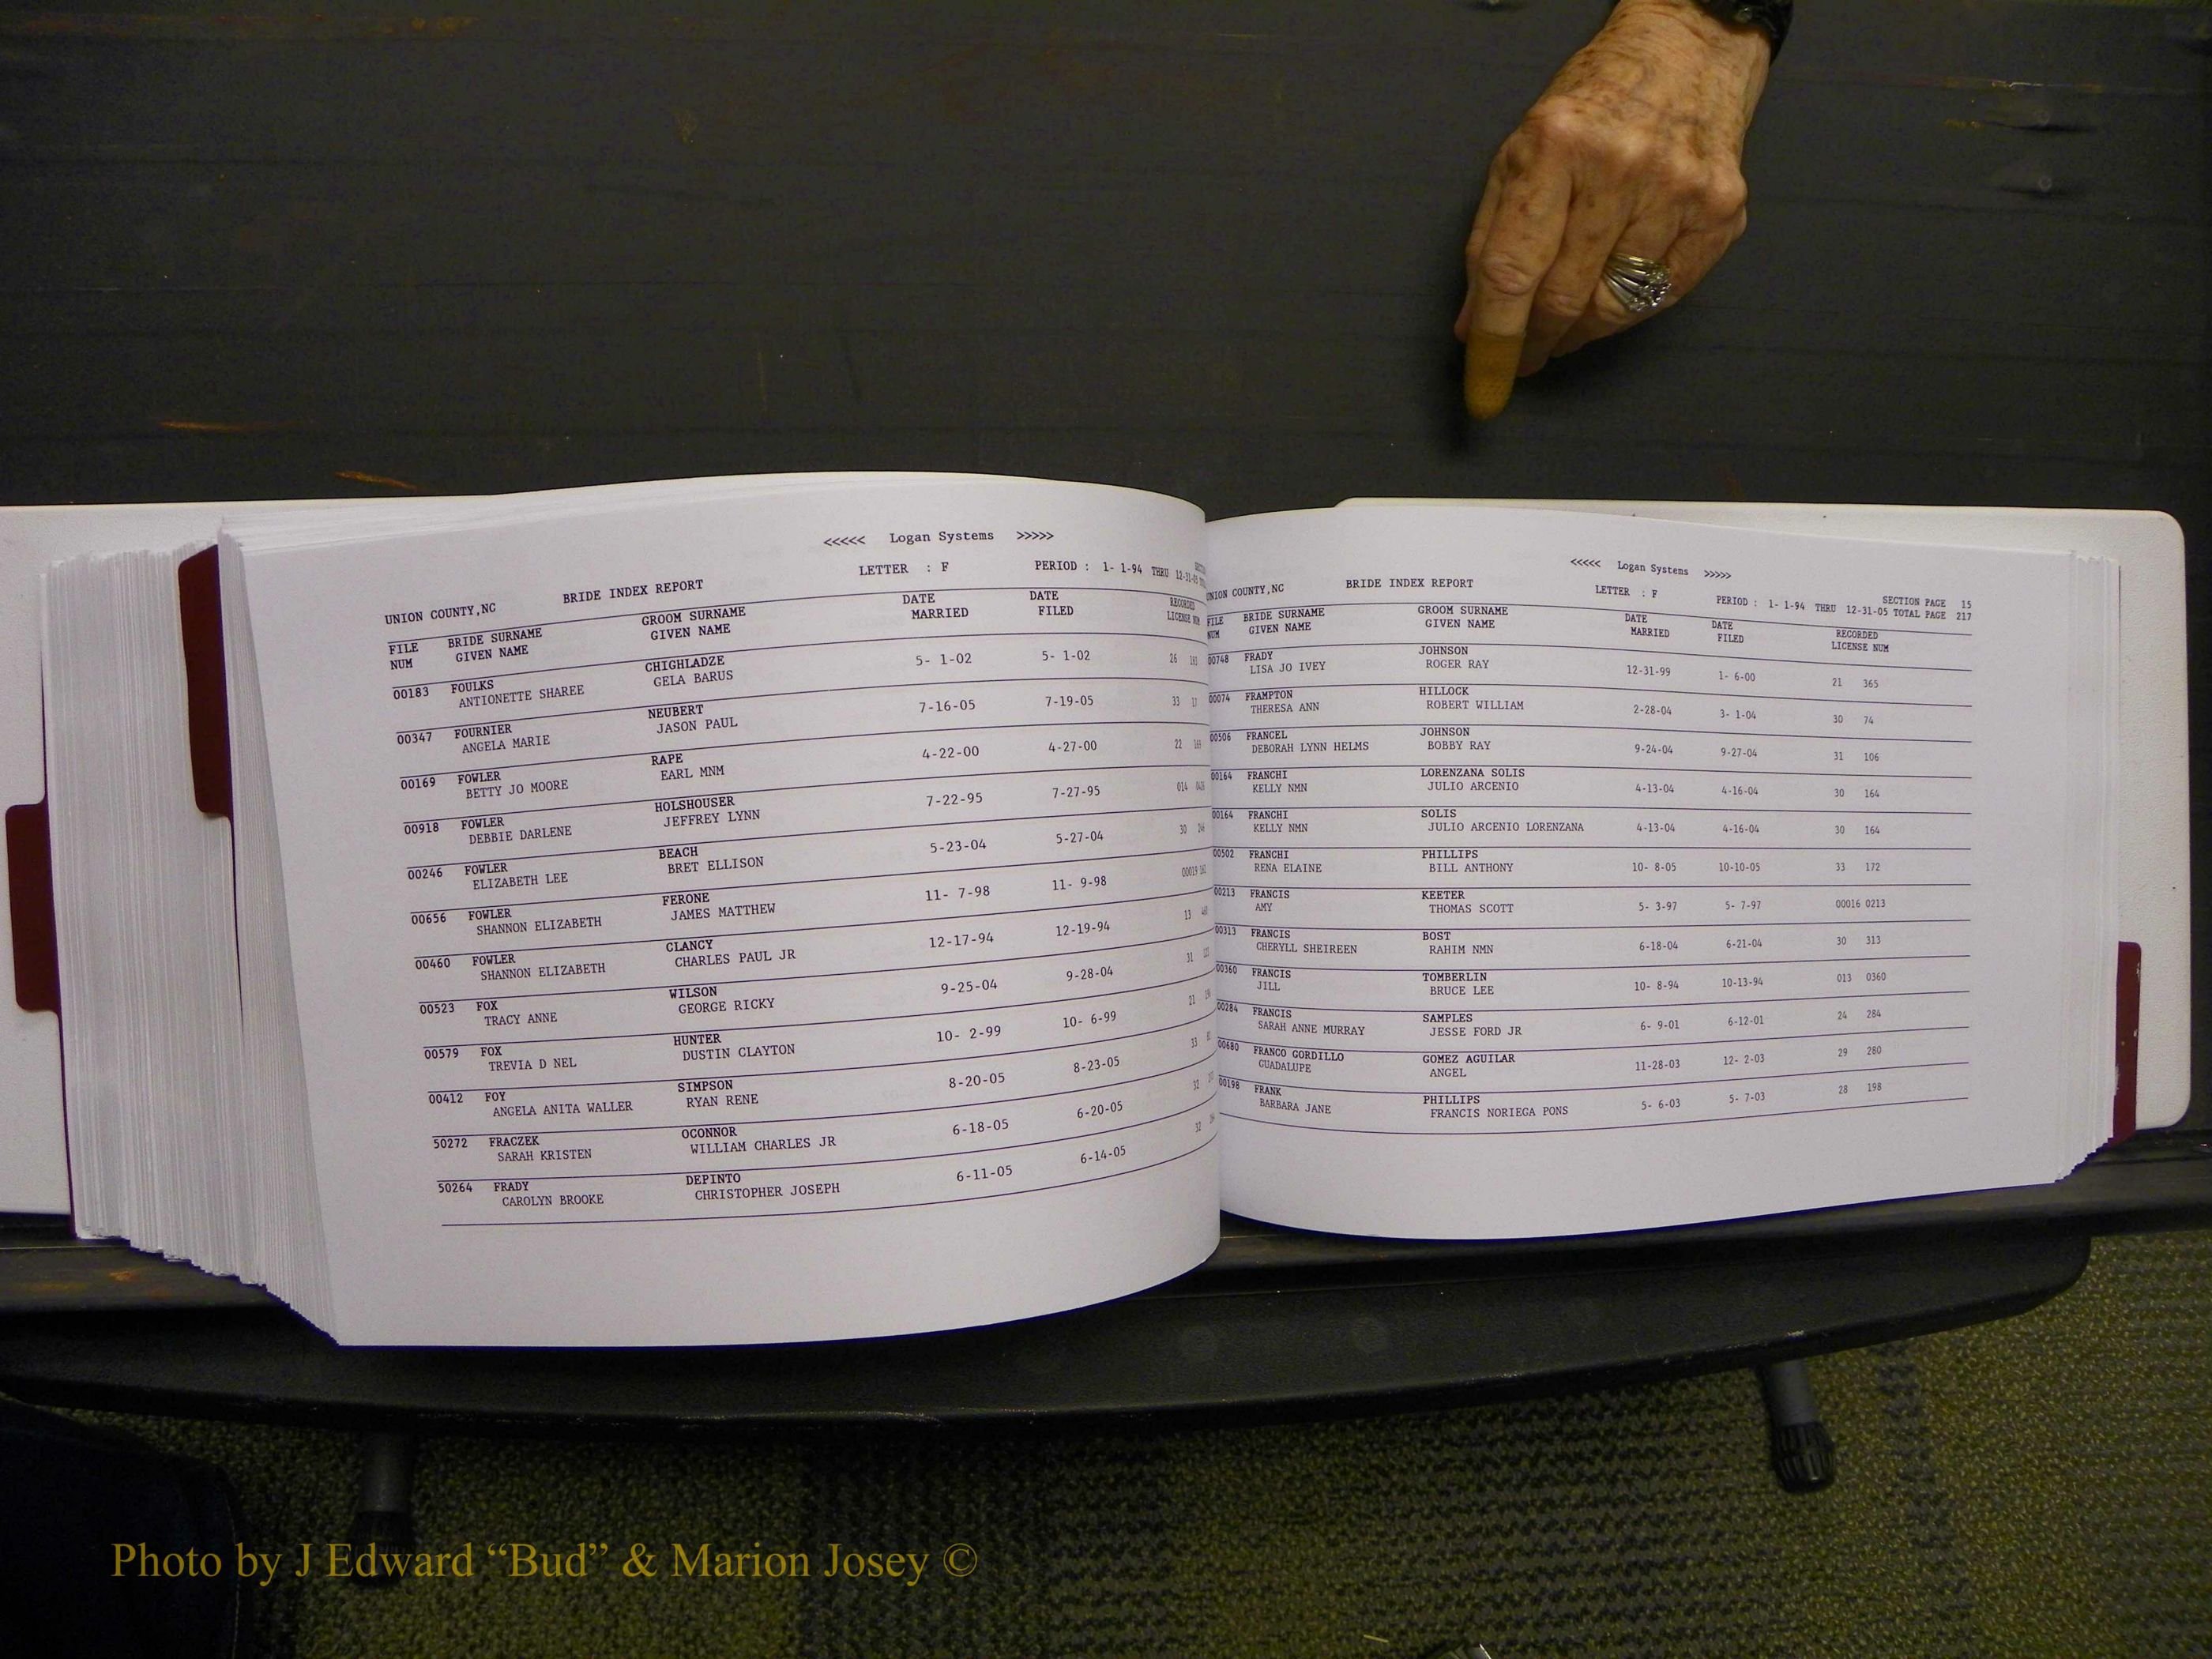 <<<<< Logan Systems >>>>>
UNION COUNTY,NC BRIDE INDEX REPORT LETTER : F PERIOD : 1- 1-94 THRU 12-31-05
FILE BRIDE SURNAME GROOM SURNAME DATE DATE RECORDED
NUM GIVEN NAME GIVEN NAME MARRIED FILED LICENSE NUM
00183 FOULKS CHIGHLADZE 5- 1-02 5- 1-02 26
ANTIONETTE SHAREE GELA BARUS
00347 FOURNIER NEUBERT 7-16-05 7-19-05 33
ANGELA MARIE JASON PAUL
00169 FOWLER RAPE 4-22-00 4-27-00 22
BETTY JO MOORE EARL MNM
00918 FOWLER HOLSHOUSER 7-22-95 7-27-95 014
DEBBIE DARLENE JEFFREY LYNN
00246 FOWLER BEACH 5-23-04 5-27-04 30
ELIZABETH LEE BRET ELLISON
00656 FOWLER FERONE 11- 7-98 11- 9-98 00019
SHANNON ELIZABETH JAMES MATTHEW
00460 FOWLER CLANCY 12-17-94 12-19-94 13
SHANNON ELIZABETH CHARLES PAUL JR
00523 FOX WILSON 9-25-04 9-28-04 31
TRACY ANNE GEORGE RICKY
00579 FOX HUNTER 10- 2-99 10- 6-99 21
TREVIA D NEL DUSTIN CLAYTON
00412 FOY SIMPSON 8-20-05 8-23-05 33
ANGELA ANITA WALLER RYAN RENE
50272 FRACZEK OCONNOR 6-18-05 6-20-05 32
SARAH KRISTEN WILLIAM CHARLES JR
50264 FRADY DEPINTO 6-11-05 6-14-05 32
CAROLYN BROOKE CHRISTOPHER JOSEPH
<<<<< Logan Systems >>>>>
UNION COUNTY,NC BRIDE INDEX REPORT LETTER : F SECTION PAGE 15
PERIOD : 1- 1-94 THRU 12-31-05 TOTAL PAGE 217
FILE BRIDE SURNAME GROOM SURNAME DATE DATE RECORDED
NUM GIVEN NAME GIVEN NAME MARRIED FILED LICENSE NUM
00748 FRADY JOHNSON 12-31-99 1- 6-00 21 365
LISA JO IVEY ROGER RAY
00074 FRAMPTON HILLOCK 2-28-04 3- 1-04 30 74
THERESA ANN ROBERT WILLIAM
00506 FRANCEL JOHNSON 9-24-04 9-27-04 31 106
DEBORAH LYNN HELMS BOBBY RAY
00164 FRANCHI LORENZANA SOLIS 4-13-04 4-16-04 30 164
KELLY NMN JULIO ARCENIO
00164 FRANCHI SOLIS 4-13-04 4-16-04 30 164
KELLY NMN JULIO ARCENIO LORENZANA
00502 FRANCHI PHILLIPS 10- 8-05 10-10-05 33 172
RENA ELAINE BILL ANTHONY
00213 FRANCIS KEETER 5- 3-97 5- 7-97 00016 0213
AMY THOMAS SCOTT
00313 FRANCIS BOST 6-18-04 6-21-04 30 313
CHERYLL SHEIREEN RAHIM NMN
00360 FRANCIS TOMBERLIN 10- 8-94 10-13-94 013 0360
JILL BRUCE LEE
00284 FRANCIS SAMPLES 6- 9-01 6-12-01 24 284
SARAH ANNE MURRAY JESSE FORD JR
00680 FRANCO GORDILLO GOMEZ AGUILAR 11-28-03 12- 2-03 29 280
GUADALUPE ANGEL
00198 FRANK PHILLIPS 5- 6-03 5- 7-03 28 198
BARBARA JANE FRANCIS NORIEGA PONS
Photo by J Edward “Bud” & Marion Josey ©